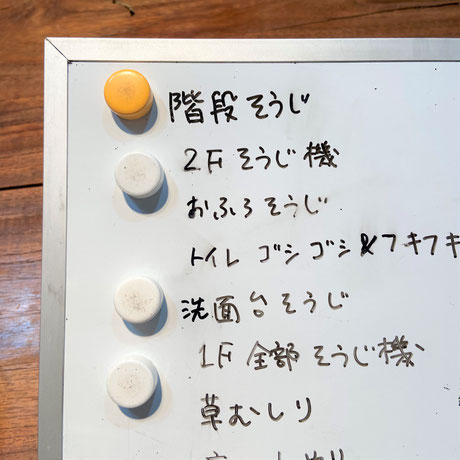 階段そうじ
2Fそうじ機
おふろそうじ
トイレ ゴシゴシ&フキフキ
洗面台そうじ
1F全部そうじ機
草むしり